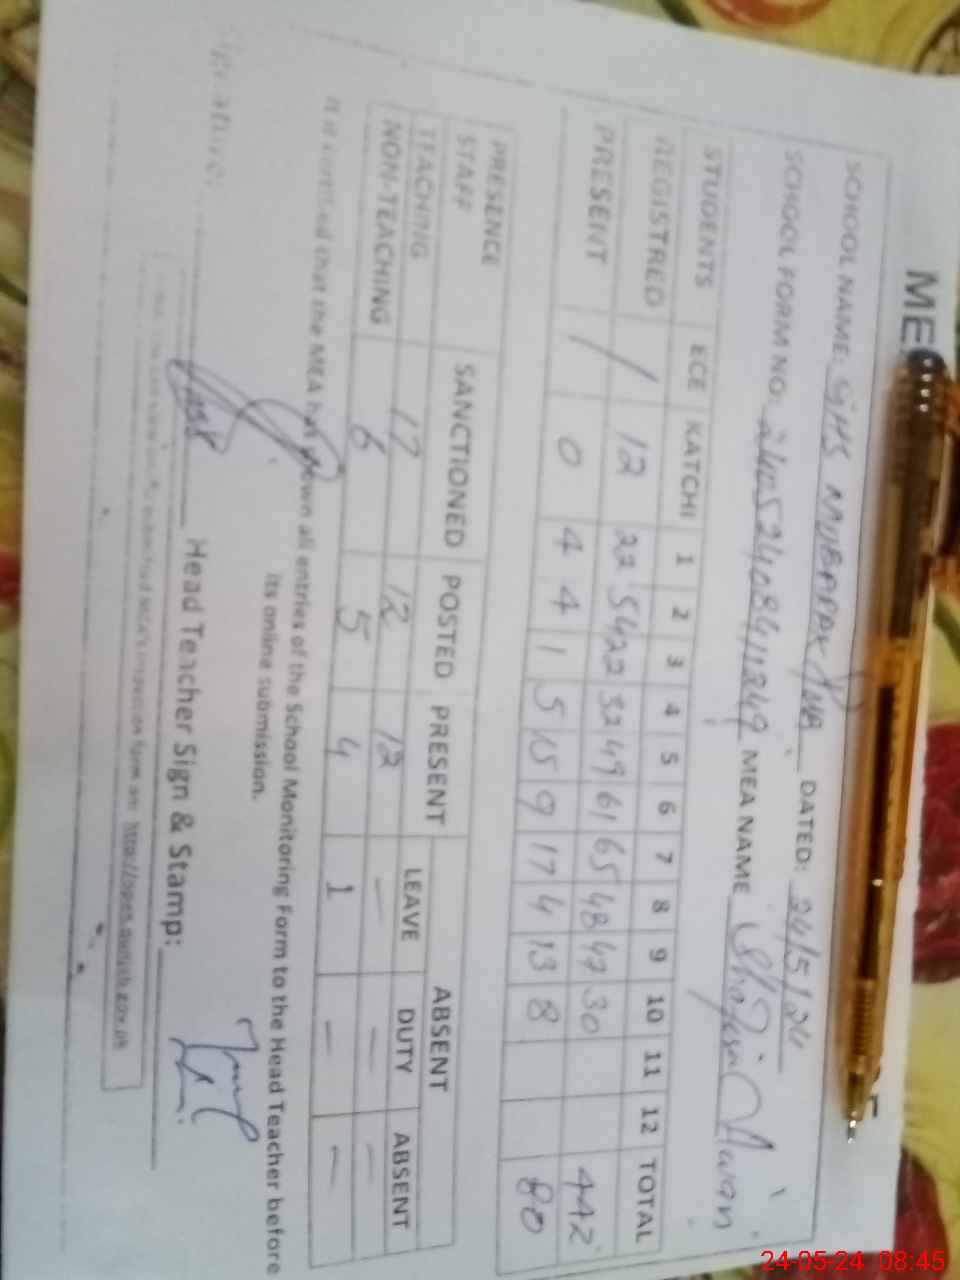 ME
SCHOOL NAME: GHS MUBARAK DATED: 24/5/24
SCHOOL FORM NO: MEA NAME Awan
STUDENTS ECE KATCHI 1 2 3 4 5 6 7 8 9 10 11 12 TOTAL
REGISTRED / 12 22 54 22 52 49 61 65 48 47 30 442
PRESENT / 0 4 4 1 5 15 9 17 4 13 8 80
PRESENCE SANCTIONED POSTED PRESENT ABSENT
STAFF LEAVE DUTY ABSENT
TEACHING 17 12 12 — — —
NON-TEACHING 6 5 4 1 — —
It is certified that the MEA has shown all entries of the School Monitoring Form to the Head Teacher before
its online submission.
Signature: Head Teacher Sign & Stamp:
submitted MEA's inspection form on: http://open.punjab.gov.pk
24-05-24 08:45